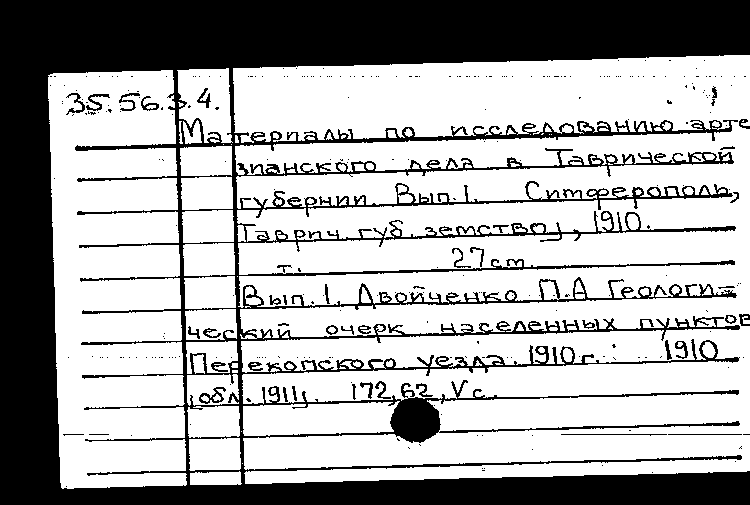 35.56.3.4.
Материалы по исследованию арте
зианского дела в Таврической
губернии. Вып.1. Симферополь,
Таврич. губ. земство], 1910.
т. 27 cm.
Вып. 1. Двойченко П.А Геологи=
ческий очерк населенных пунктов
Перекопского уезда. 1910г. 1910
[обл. 1911]. 172,62, V с.